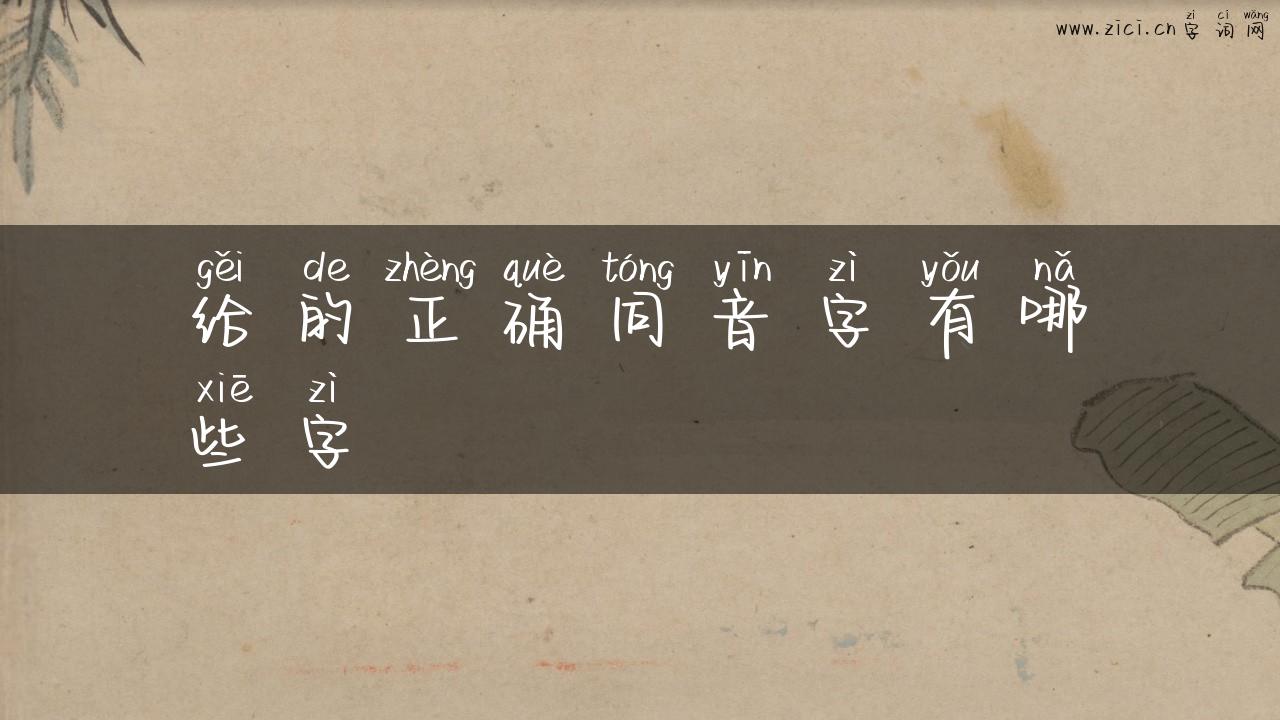 zì cí wǎng
www.zici.cn 字 词 网
gěi de zhèng què tóng yīn zì yǒu nǎ
给 的 正 确 同 音 字 有 哪
xiē zì
些 字